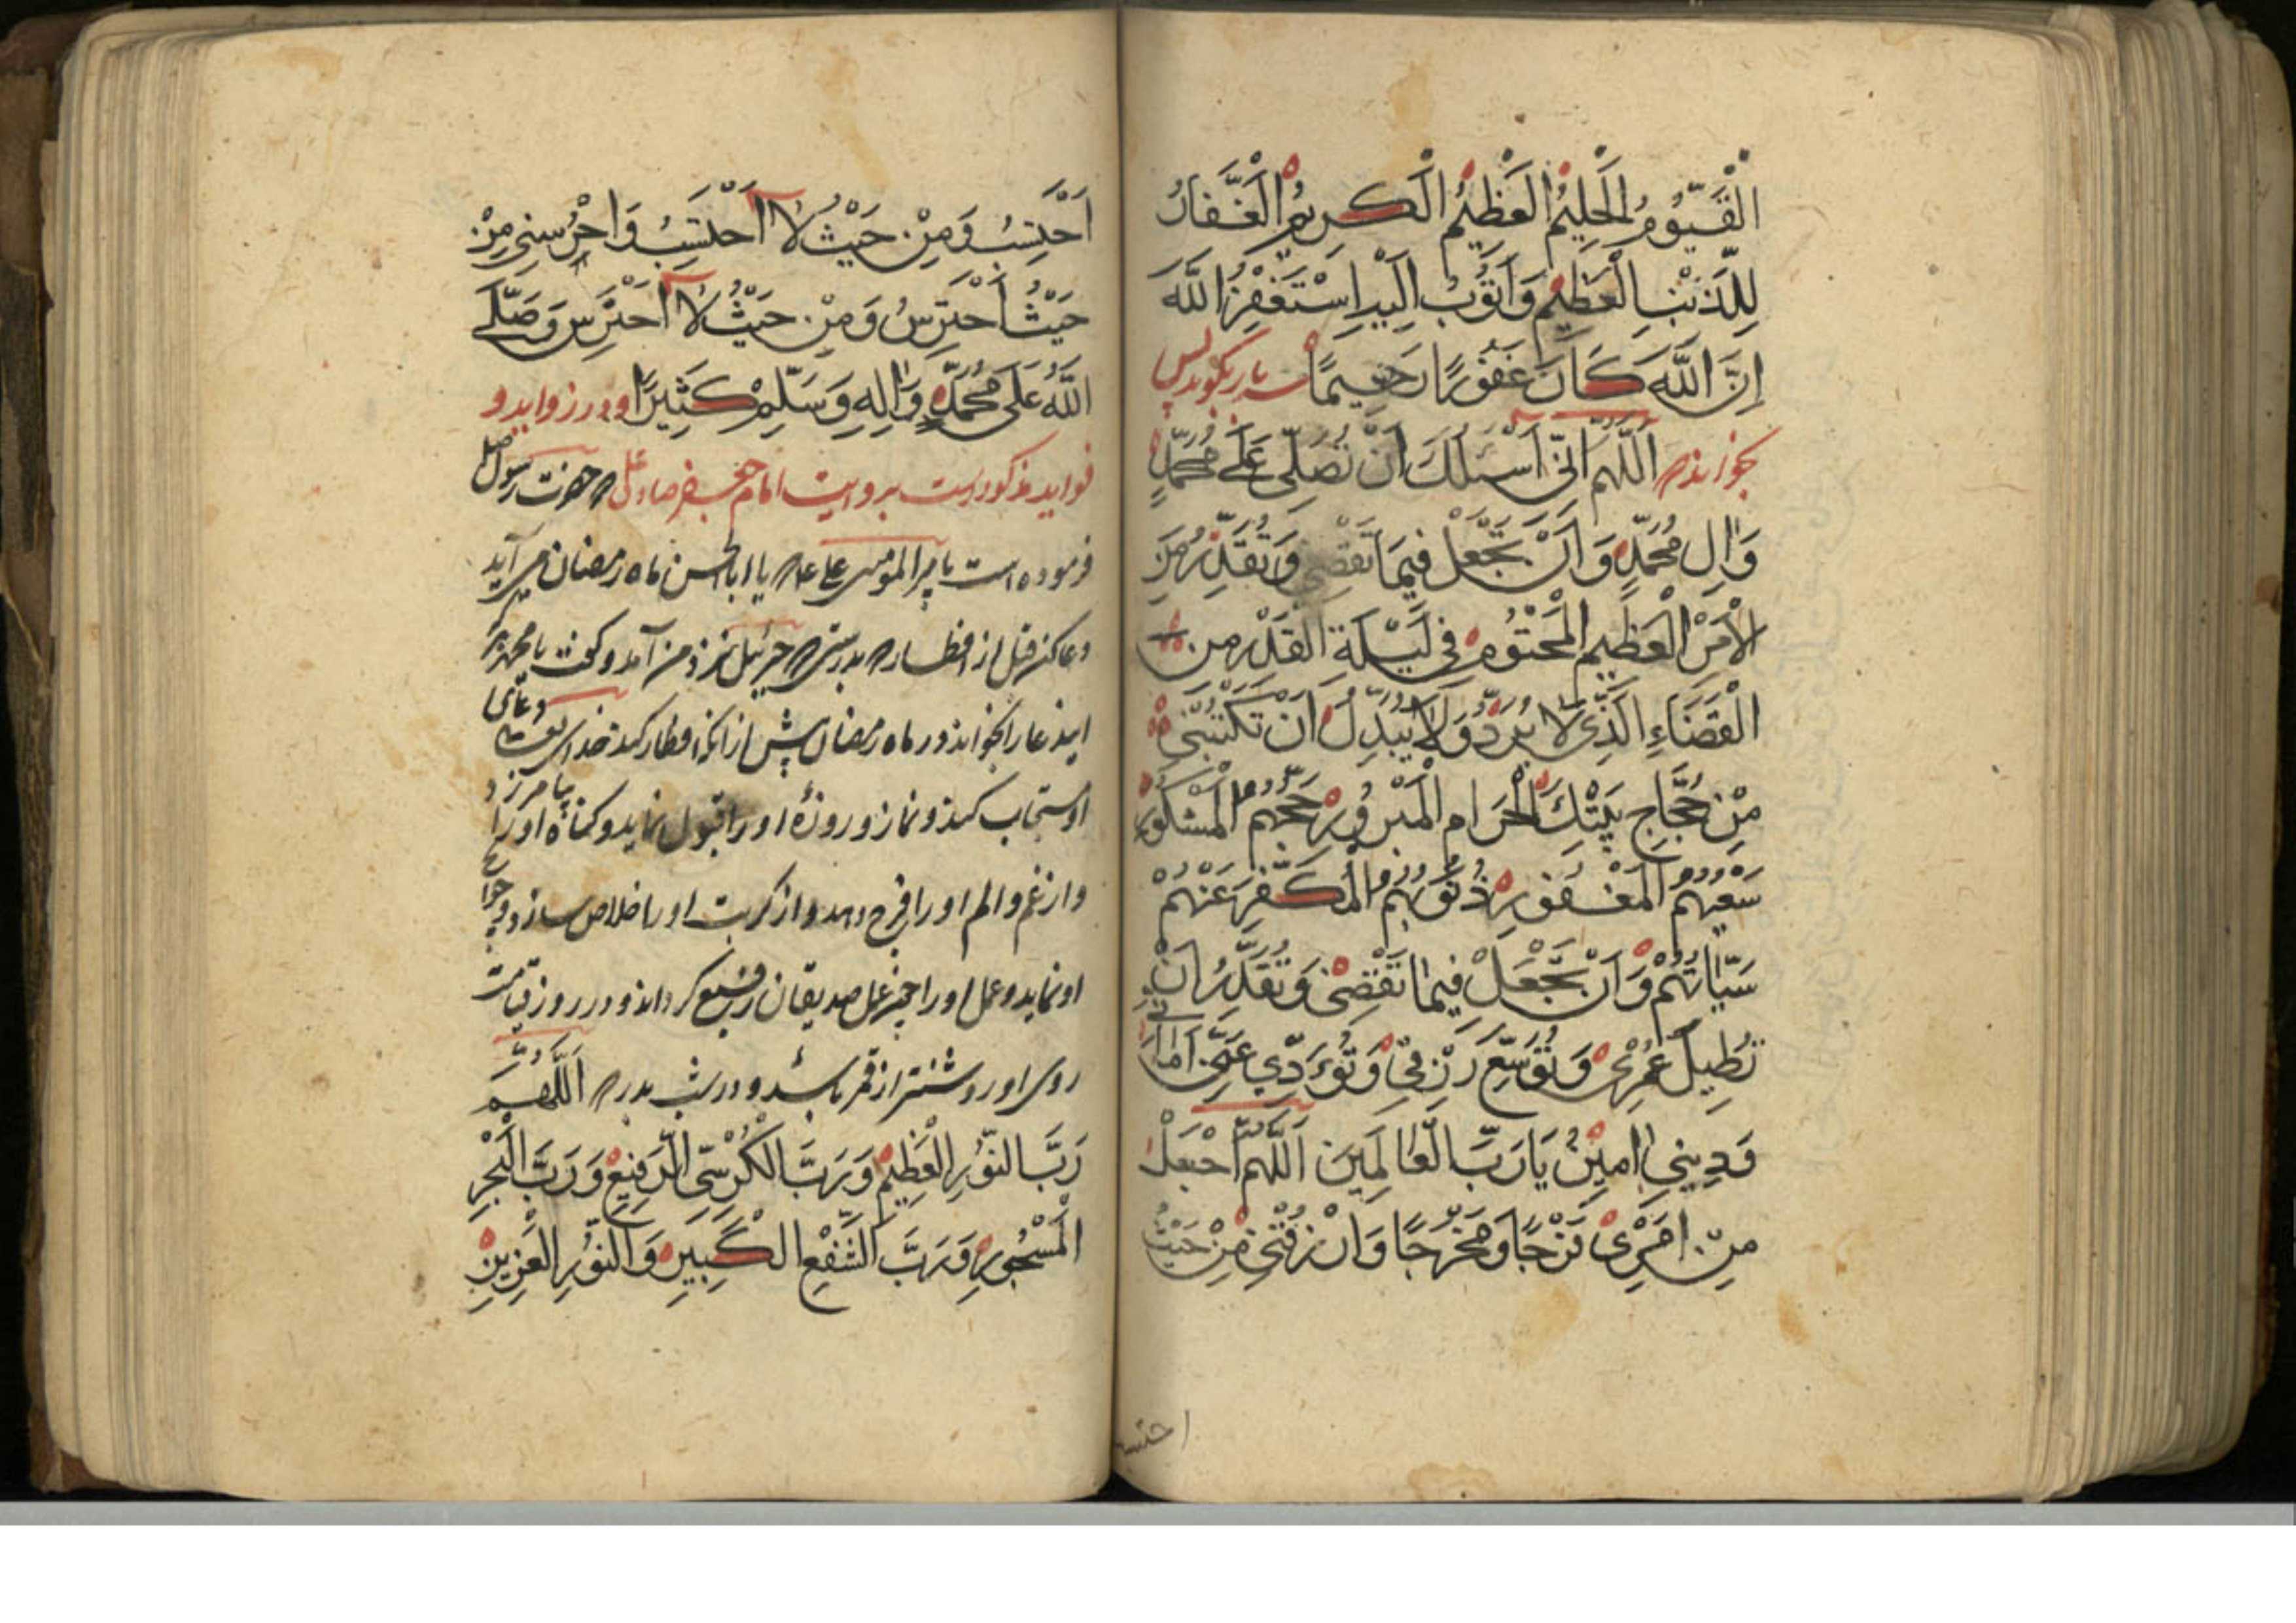 الْقَيُّومُ الْحَلِيمُ الْعَظِيمُ الْكَرِيمُ الْغَفَّارُ
لِلذَّنْبِ الْعَظِيمِ وَاَتُوبُ اِلَيْهِ اِسْتَغْفِرُ اللَّهَ
اِنَّ اللَّهَ كَانَ غَفُورًا رَحِيمًا سه بار بگويد پس
بخواند اَللَّهُمَّ اِنِّى اَسْئَلُكَ اَنْ تُصَلِّىَ عَلَى مُحَمَّدٍ
وَالِ مُحَمَّدٍ وَاَنْ تَجْعَلَ فِيمَا تَقْضِى وَتُقَدِّرُ مِنَ
الْاَمْرِ الْعَظِيمِ الْمَحْتُومِ فِى لَيْلَةِ الْقَدْرِ مِنَ
الْقَضَاءِ الَّذِى لَا يُرَدُّ وَلَا يُبَدَّلُ اَنْ تَكْتُبَنِى
مِنْ حُجَّاجِ بَيْتِكَ الْحَرَامِ الْمَبْرُورِ حَجُّهُمُ الْمَشْكُورِ
سَعْيُهُمُ الْمَغْفُورِ ذُنُوبُهُمُ الْمُكَفَّرِ عَنْهُمْ
سَيِّاتُهُمْ وَاَنْ تَجْعَلَ فِيمَا تَقْضِى وَتُقَدِّرُ اَنْ
تُطِيلَ عُمْرِى وَتُوَسِّعَ رِزْقِى وَتُؤَدِّىَ عَنِّى اَمَانَتِى
وَدِينِى امِينَ يَا رَبَّ الْعَالَمِينَ اَللَّهُمَّ اجْعَلْ
مِنْ اَمْرِى فَرَجًا وَمَخْرَجًا وَارْزُقْنِى مِنْ حَيْثُ
احتسب
اَحْتَسِبُ وَمِنْ حَيْثُ لَا اَحْتَسِبُ وَاحْرُسْنِى مِنْ
حَيْثُ اَحْتَرِسُ وَمِنْ حَيْثُ لَا اَحْتَرِسُ وَصَلَّى
اللَّهُ عَلَى مُحَمَّدٍ وَالِهِ وَسَلِّمْ كَثِيرًا و در زوايد و
فوايد مذكورست بروايت امام جعفر صادق حضرت رسول
فرموده است بامير المومنين على يا ابا الحسن ماه رمضان مى آيد
دعا كن قبل از افطار بدرستى جبرئيل نزد من آمد و گفت يا محمد هر كه
ايندعا را بخواند در ماه رمضان پيش از انكه افطار كند خداى تعالى دعاى
او مستجاب كند و نماز و روزۀ او را قبول نمايد و گناه او را بيامرزد
و از غم و الم او را فرج دهد و از كربت او را خلاص سازد و حوايج
او نمايد و عمل او را با عمل صديقان رفيع گرداند و در روز قيامت
روى او روشنتر از قمر باشد در شب بدر اَللَّهُمَّ
رَبَّ النُّورِ الْعَظِيمِ وَرَبَّ الْكُرْسِىِّ الرَّفِيعِ وَرَبَّ الْبَحْرِ
الْمَسْجُورِ وَرَبَّ الشَّفْعِ الْكَبِيرِ وَالنُّورِ الْعَزِيزِ